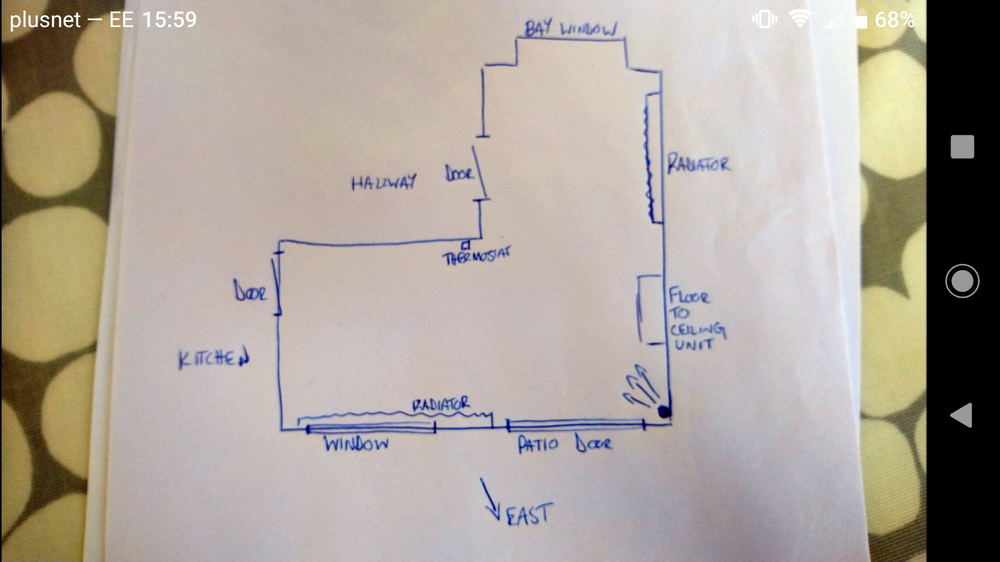 plusnet – EE 15:59
68%
BAY WINDOW
HALLWAY
DOOR
RADIATOR
THERMOSTAT
DOOR
FLOOR
TO
CEILING
UNIT
KITCHEN
RADIATOR
WINDOW
PATIO DOOR
EAST